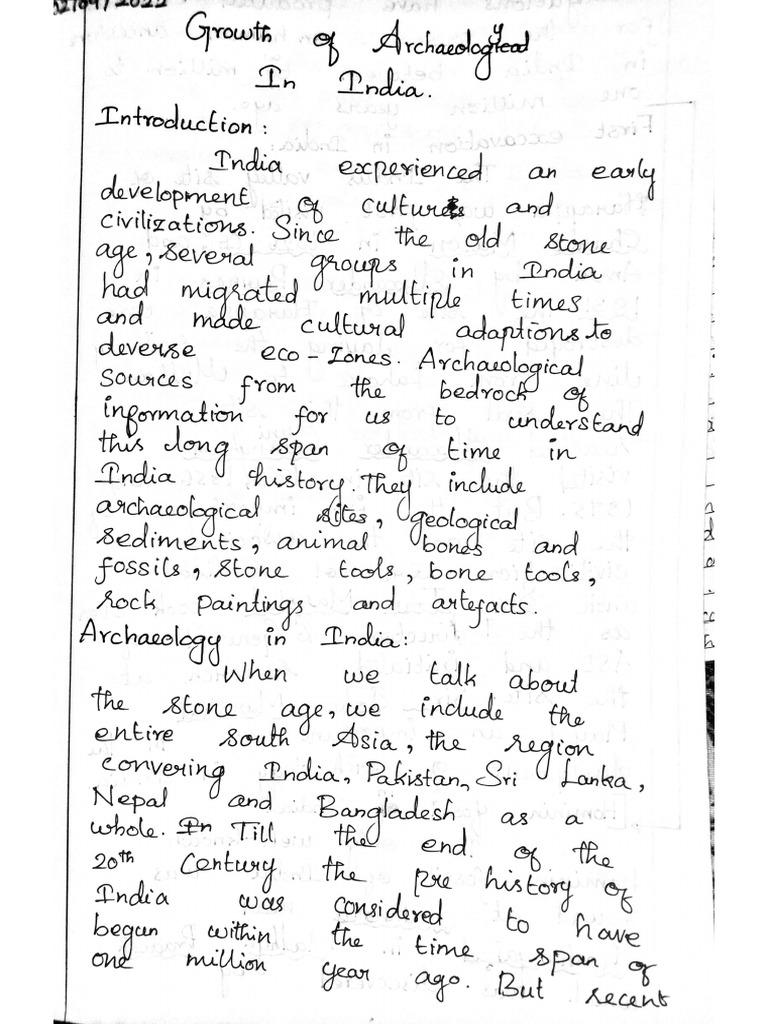 02/09/2022
Growth of Archaeology
In India.
Introduction:
India experienced an early
development of cultures and
civilizations. Since the old stone
age, several groups in India
had migrated multiple times
and made cultural adaptions to
deverse eco-zones. Archaeological
sources from the bedrock of
information for us to understand
this long span of time in
India history. They include
archaeological sites, geological
sediments, animal bones and
fossils, stone tools, bone tools,
rock paintings and artefacts.
Archaeology in India:
When we talk about
the stone age, we include the
entire south Asia, the region
convering India, Pakistan, Sri Lanka,
Nepal and Bangladesh as a
whole. In Till the end of the
20th Century the pre history of
India was considered to have
begun within the time span of
one million year ago. But recent